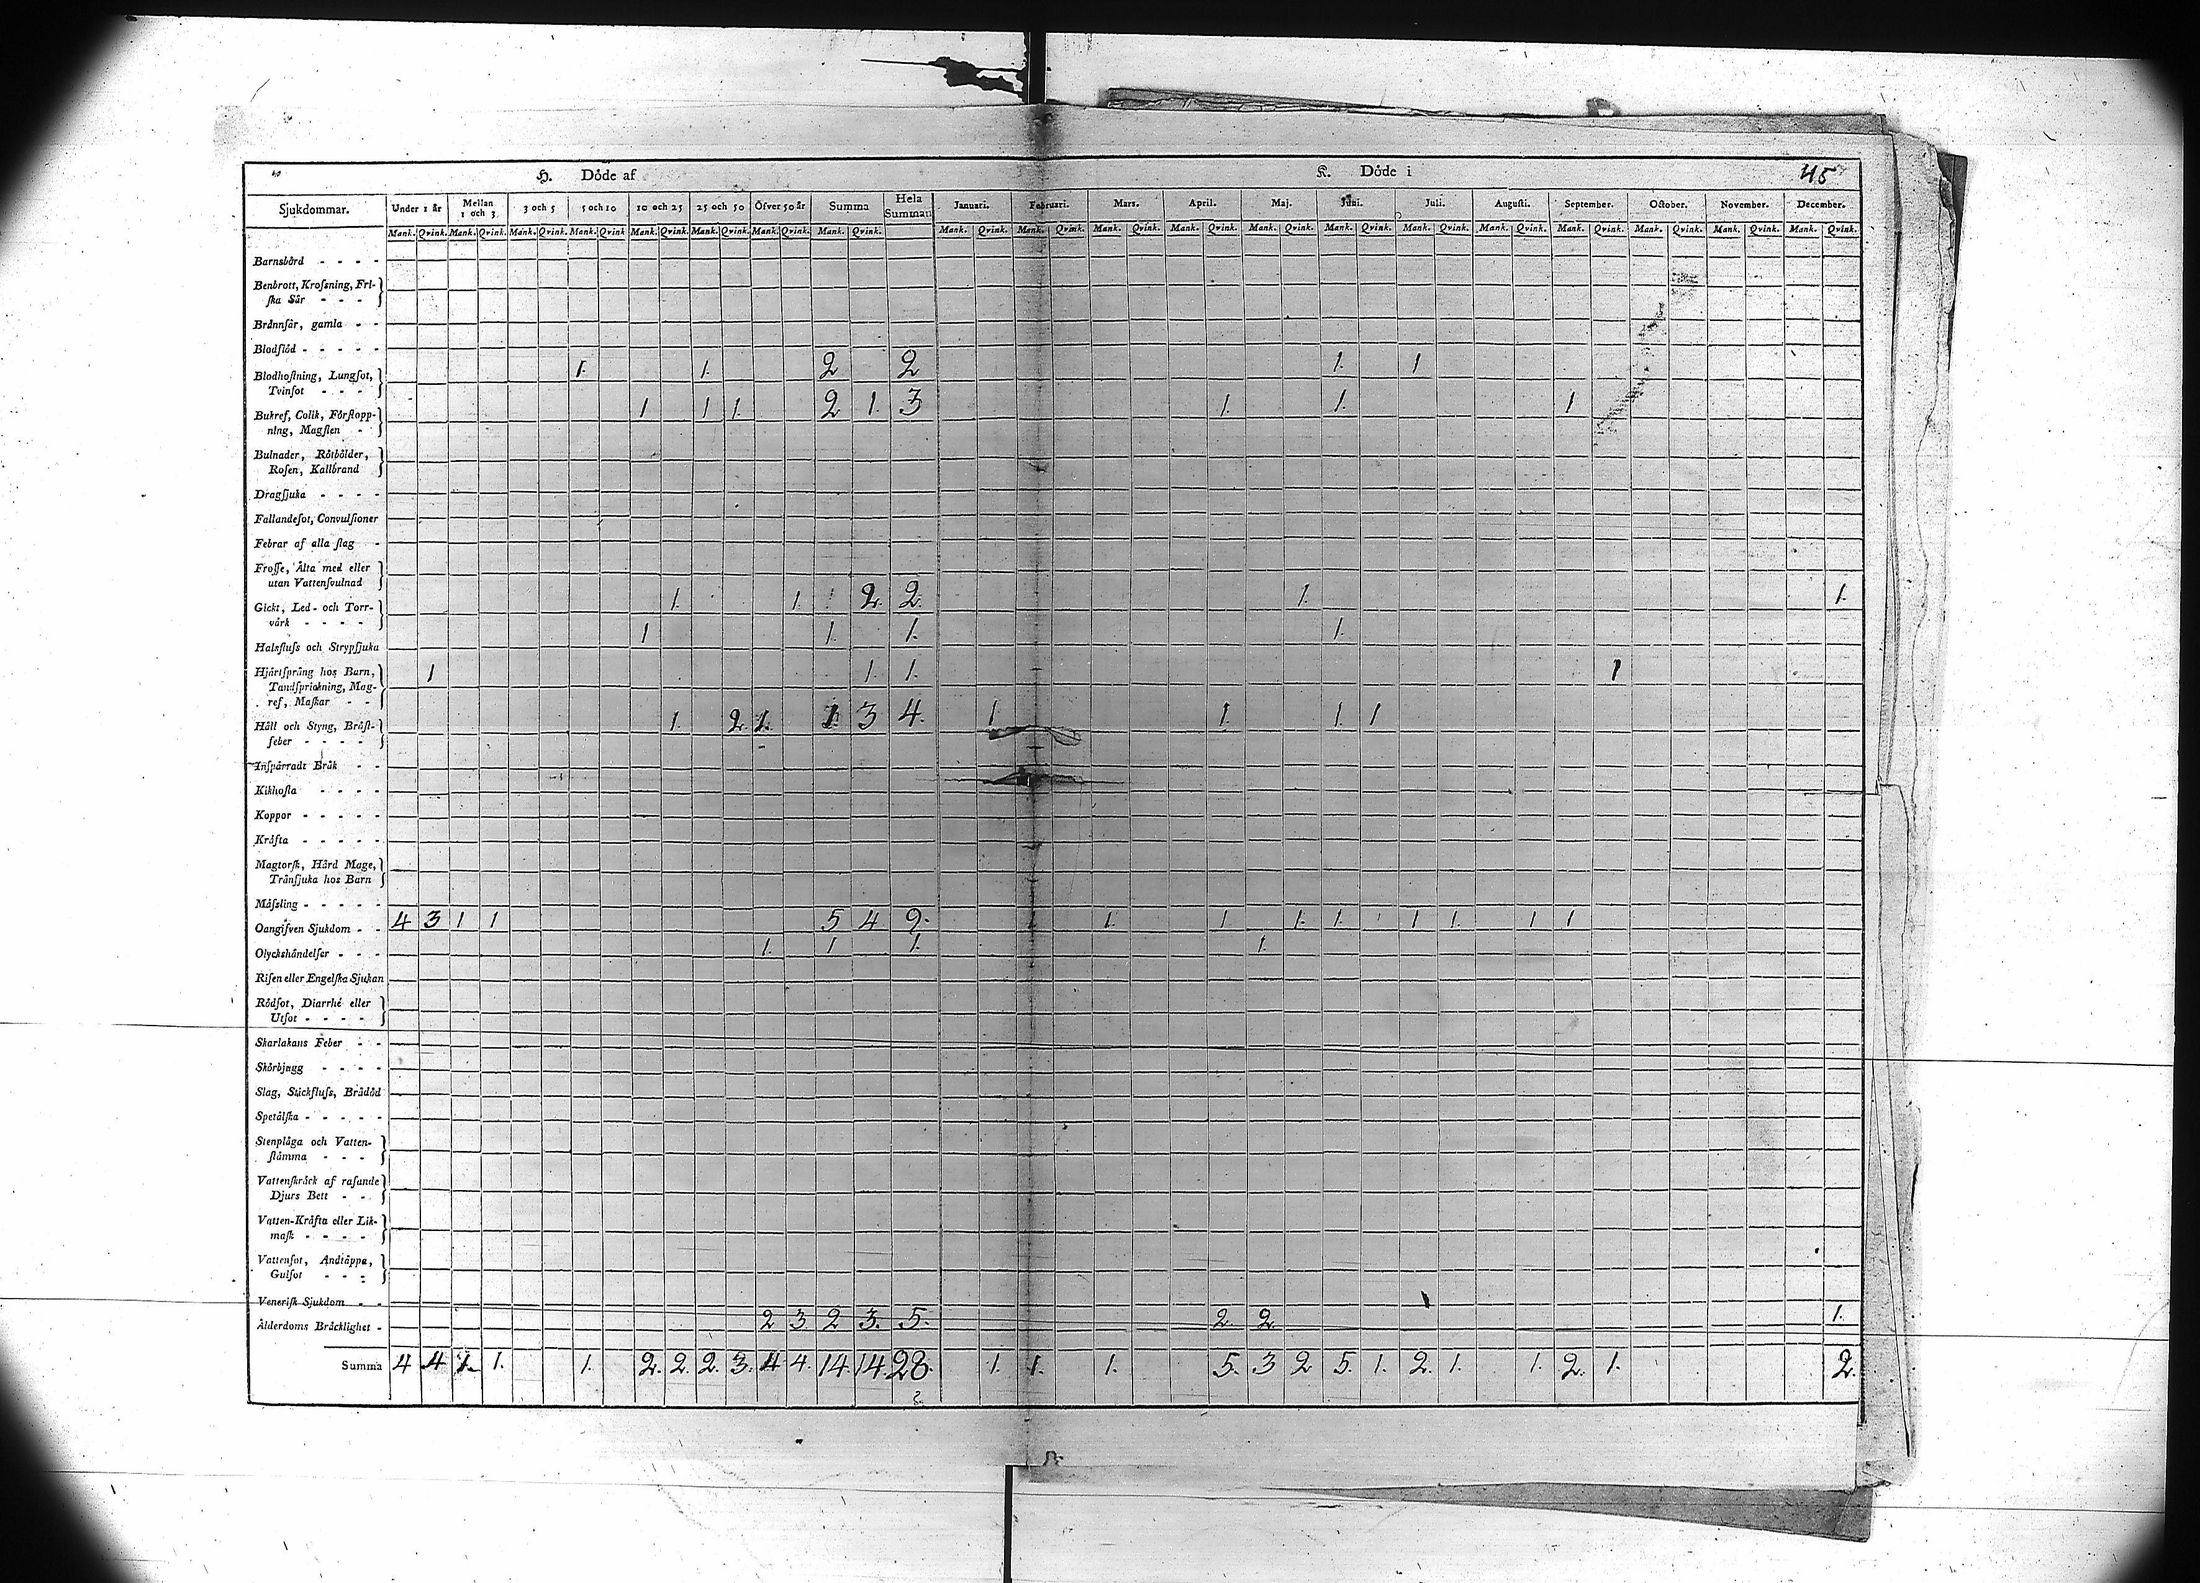 H. Döde af K. Döde i 45
Sjukdommar. Under 1 år Mellan 1 och 3 3 och 5 5 och 10 10 och 25 25 och 50 Öfver 50 år Summa Hela Summan Januari. Februari. Mars. April. Maj. Juni. Juli. Augusti. September. October. November. December.
Mank. Qvink. Mank. Qvink. Mank. Qvink. Mank. Qvink Mank. Qvink. Mank. Qvink. Mank. Qvink. Mank. Qvink. Mank. Qvink. Mank. Qvink. Mank. Qvink. Mank. Qvink. Mank. Qvink. Mank. Qvink. Mank. Qvink. Mank. Qvink. Mank. Qvink. Mank. Qvink. Mank. Qvink. Mank. Qvink.
Barnsbörd - - - -
Benbrott, Krofsning, Fri-
ſka Sår - - -
Brännſår, gamla - -
Blodflöd - - - - -
1. 1. 2 2 1. 1
Blodhoſtning, Lungſot,
Tvinſot - - -
1 1 1. 2 1. 3 1. 1. 1
Bukref, Colik, Förſtopp-
ning, Magſten -
Bulnader, Rötbölder,
Roſen, Kallbrand
Dragſjuka - - - -
Fallandeſot, Convulſioner
Febrar af alla ſlag -
Froſſe, Älta med eller
utan Vattenſvulnad
1. 1. 2. 2. 1. 1.
Gickt, Led- och Torr-
värk - - - -
1 1. 1. 1.
Halsfluſs och Strypſjuka
Hjärtſpräng hos Barn, 1 1. 1. 1
Tandſprickning, Mag-
ref, Maſkar - -
1. 2. 1. 1. 3 4. 1. 1. 1. 1
Håll och Styng, Bröſt-
feber - - - -
Inſpärradt Bråk - -
Kikhoſta - - - -
Koppor - - - - -
Kräfta - - - - -
Magtorſk, Hård Mage,
Trånſjuka hos Barn
Mäſsling - - - - -
4 3 1 1 5 4 9. 1 1. 1 1. 1. 1 1 1. 1 1
Oangifven Sjukdom - -
1. 1 1. 1.
Olyckshändelſer - - -
Riſen eller Engelſka Sjukan
Rödſot, Diarrhé eller
Utſot - - - -
Skarlakans Feber - -
Skörbjugg - - - -
Slag, Stickfluſs, Brådöd
Spetälſka - - - - -
Stenplåga och Vatten-
ſtämma - - -
Vattenſkräck af raſande
Djurs Bett - -
Vatten-Kräfta eller Lik-
maſk - - - -
Vattenſot, Andtäppa,
Gulſot - - -
Veneriſk Sjukdom - -
2 3. 2 3. 5. 2. 2 1.
Ålderdoms Bräcklighet -
Summa 4 4 1. 1. 1. 2. 2. 2. 3. 4 4. 14. 14. 28. 1. 1. 1. 5. 3 2 5. 1. 2. 1. 1. 2. 1. 2.